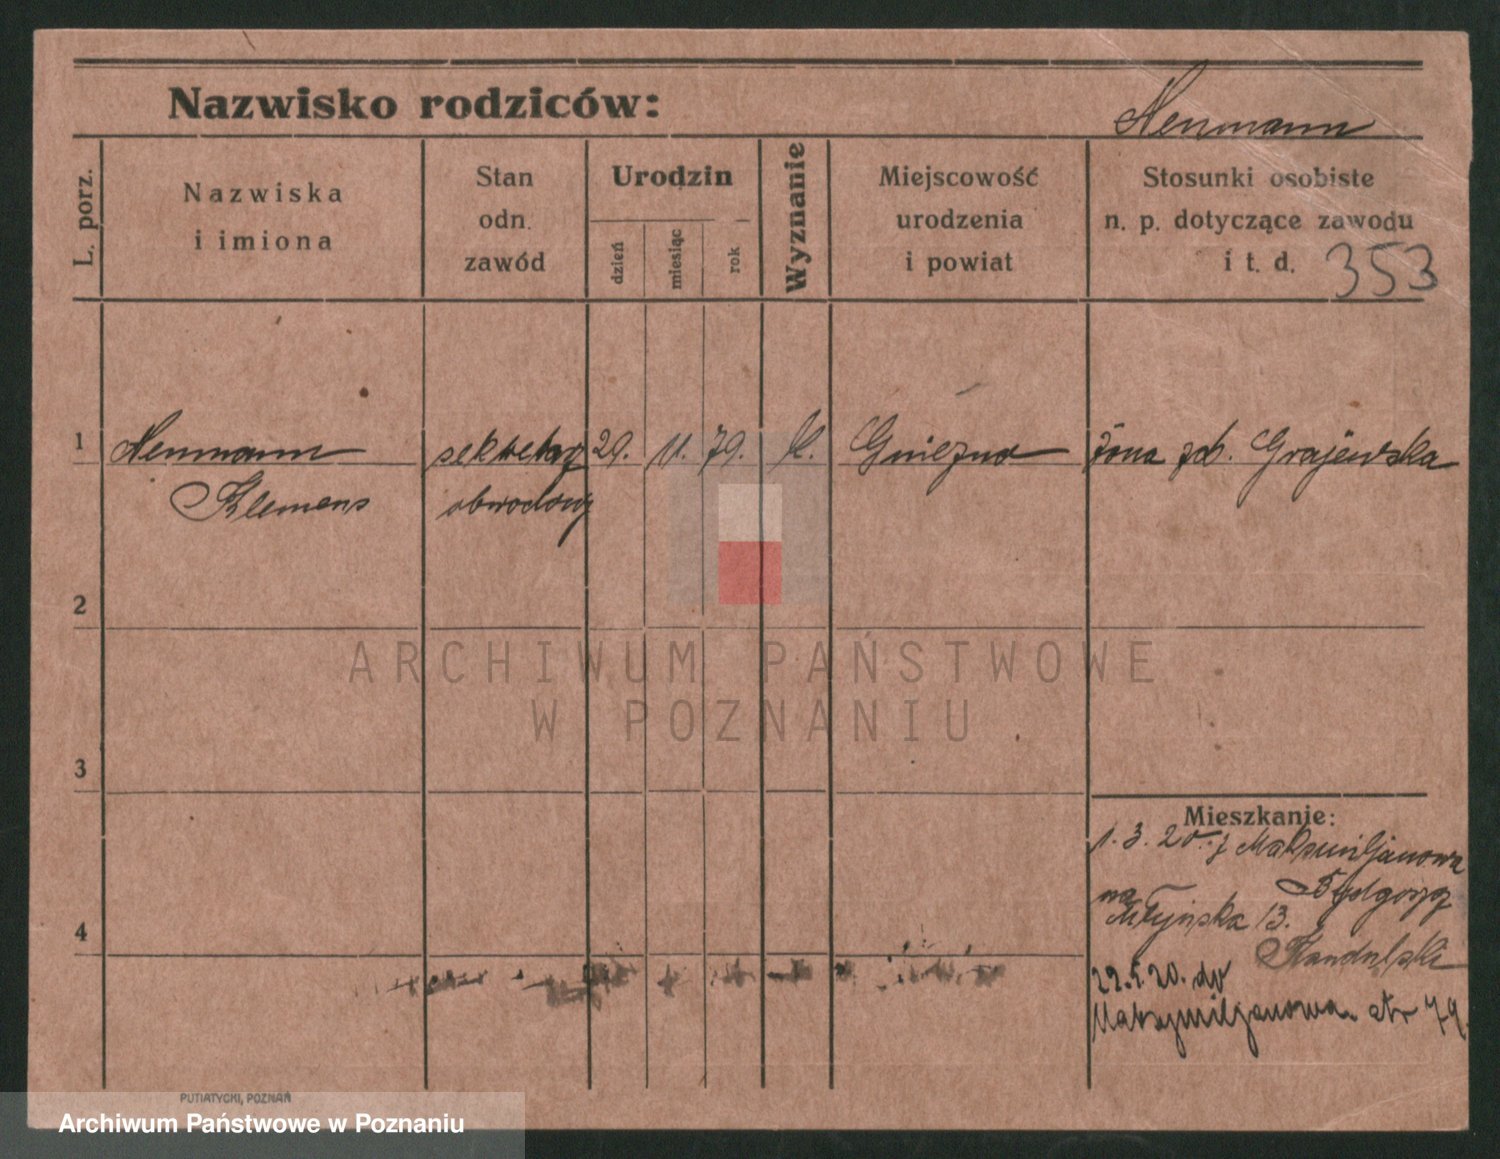 Nazwisko rodziców:
Neumann
L. porz.
Nazwiska
i imiona
Stan
odn.
zawód
Urodzin
dzień
miesiąc
rok
Wyznanie
Miejscowość
urodzenia
i powiat
Stosunki osobiste
n. p. dotyczące zawodu
i t. d.
353
1 Neumann sekretarz 29. 11. 79. k. Gniezno żona zd. Grajewska
Klemens obwodowy
2
3
Mieszkanie:
1. 3. 20. z Maksymiljanowa
Bydgoszcz
na
Młyńska 13.
Kandulski
4
22.5.20. do
Maksymiljanowa str 79.
ARCHIWUM PAŃSTWOWE
W POZNANIU
PUTIATYCKI, POZNAŃ
Archiwum Państwowe w Poznaniu